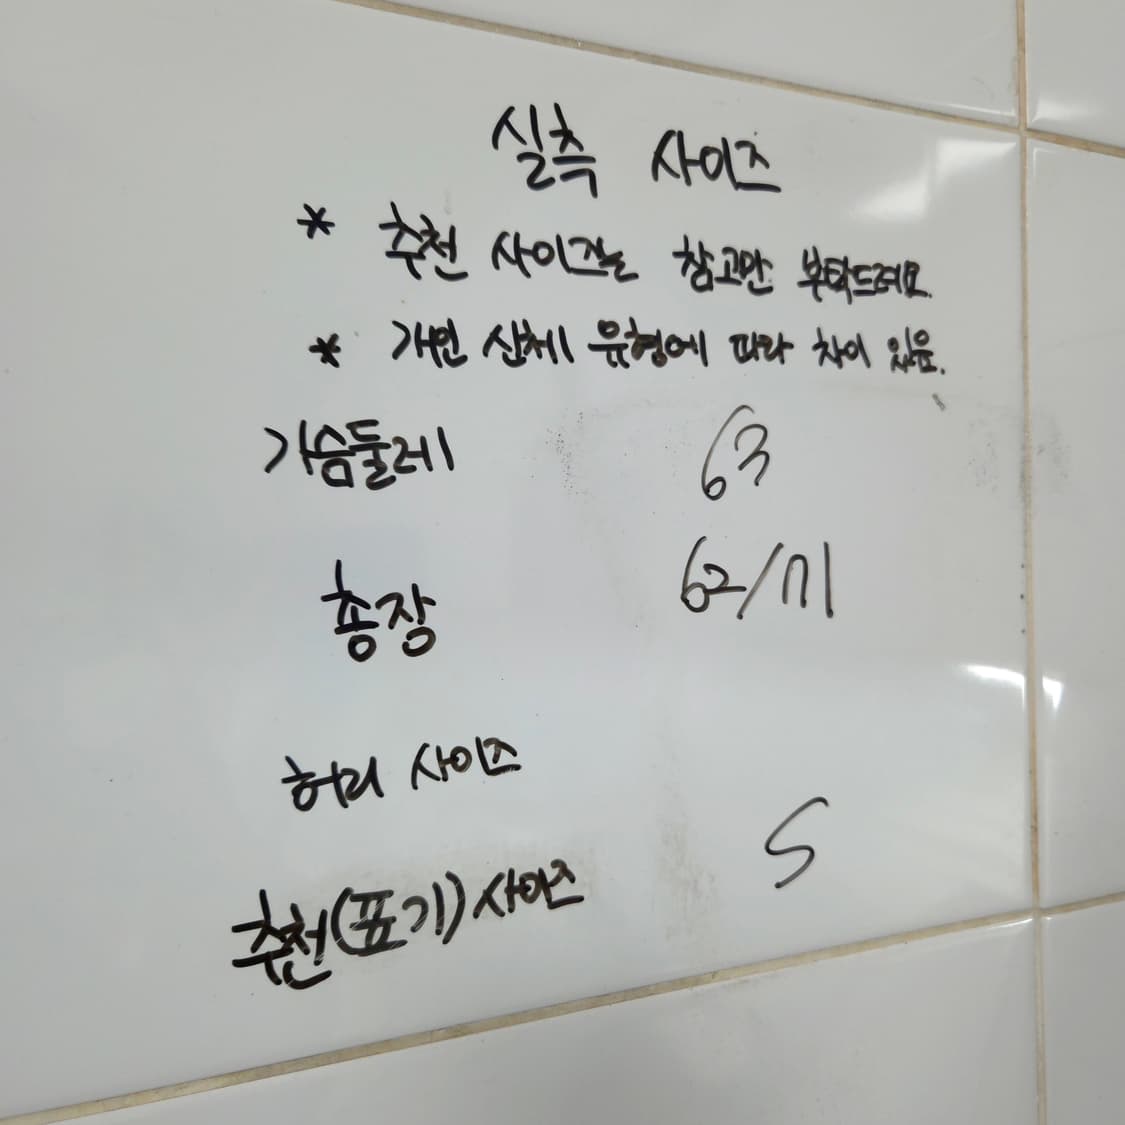 실측 사이즈
* 추천 사이즈는 참고만 부탁드려요.
* 개인 신체 유형에 따라 차이 있음.
가슴둘레 63
총장 62/71
허리 사이즈
추천(표기) 사이즈 S